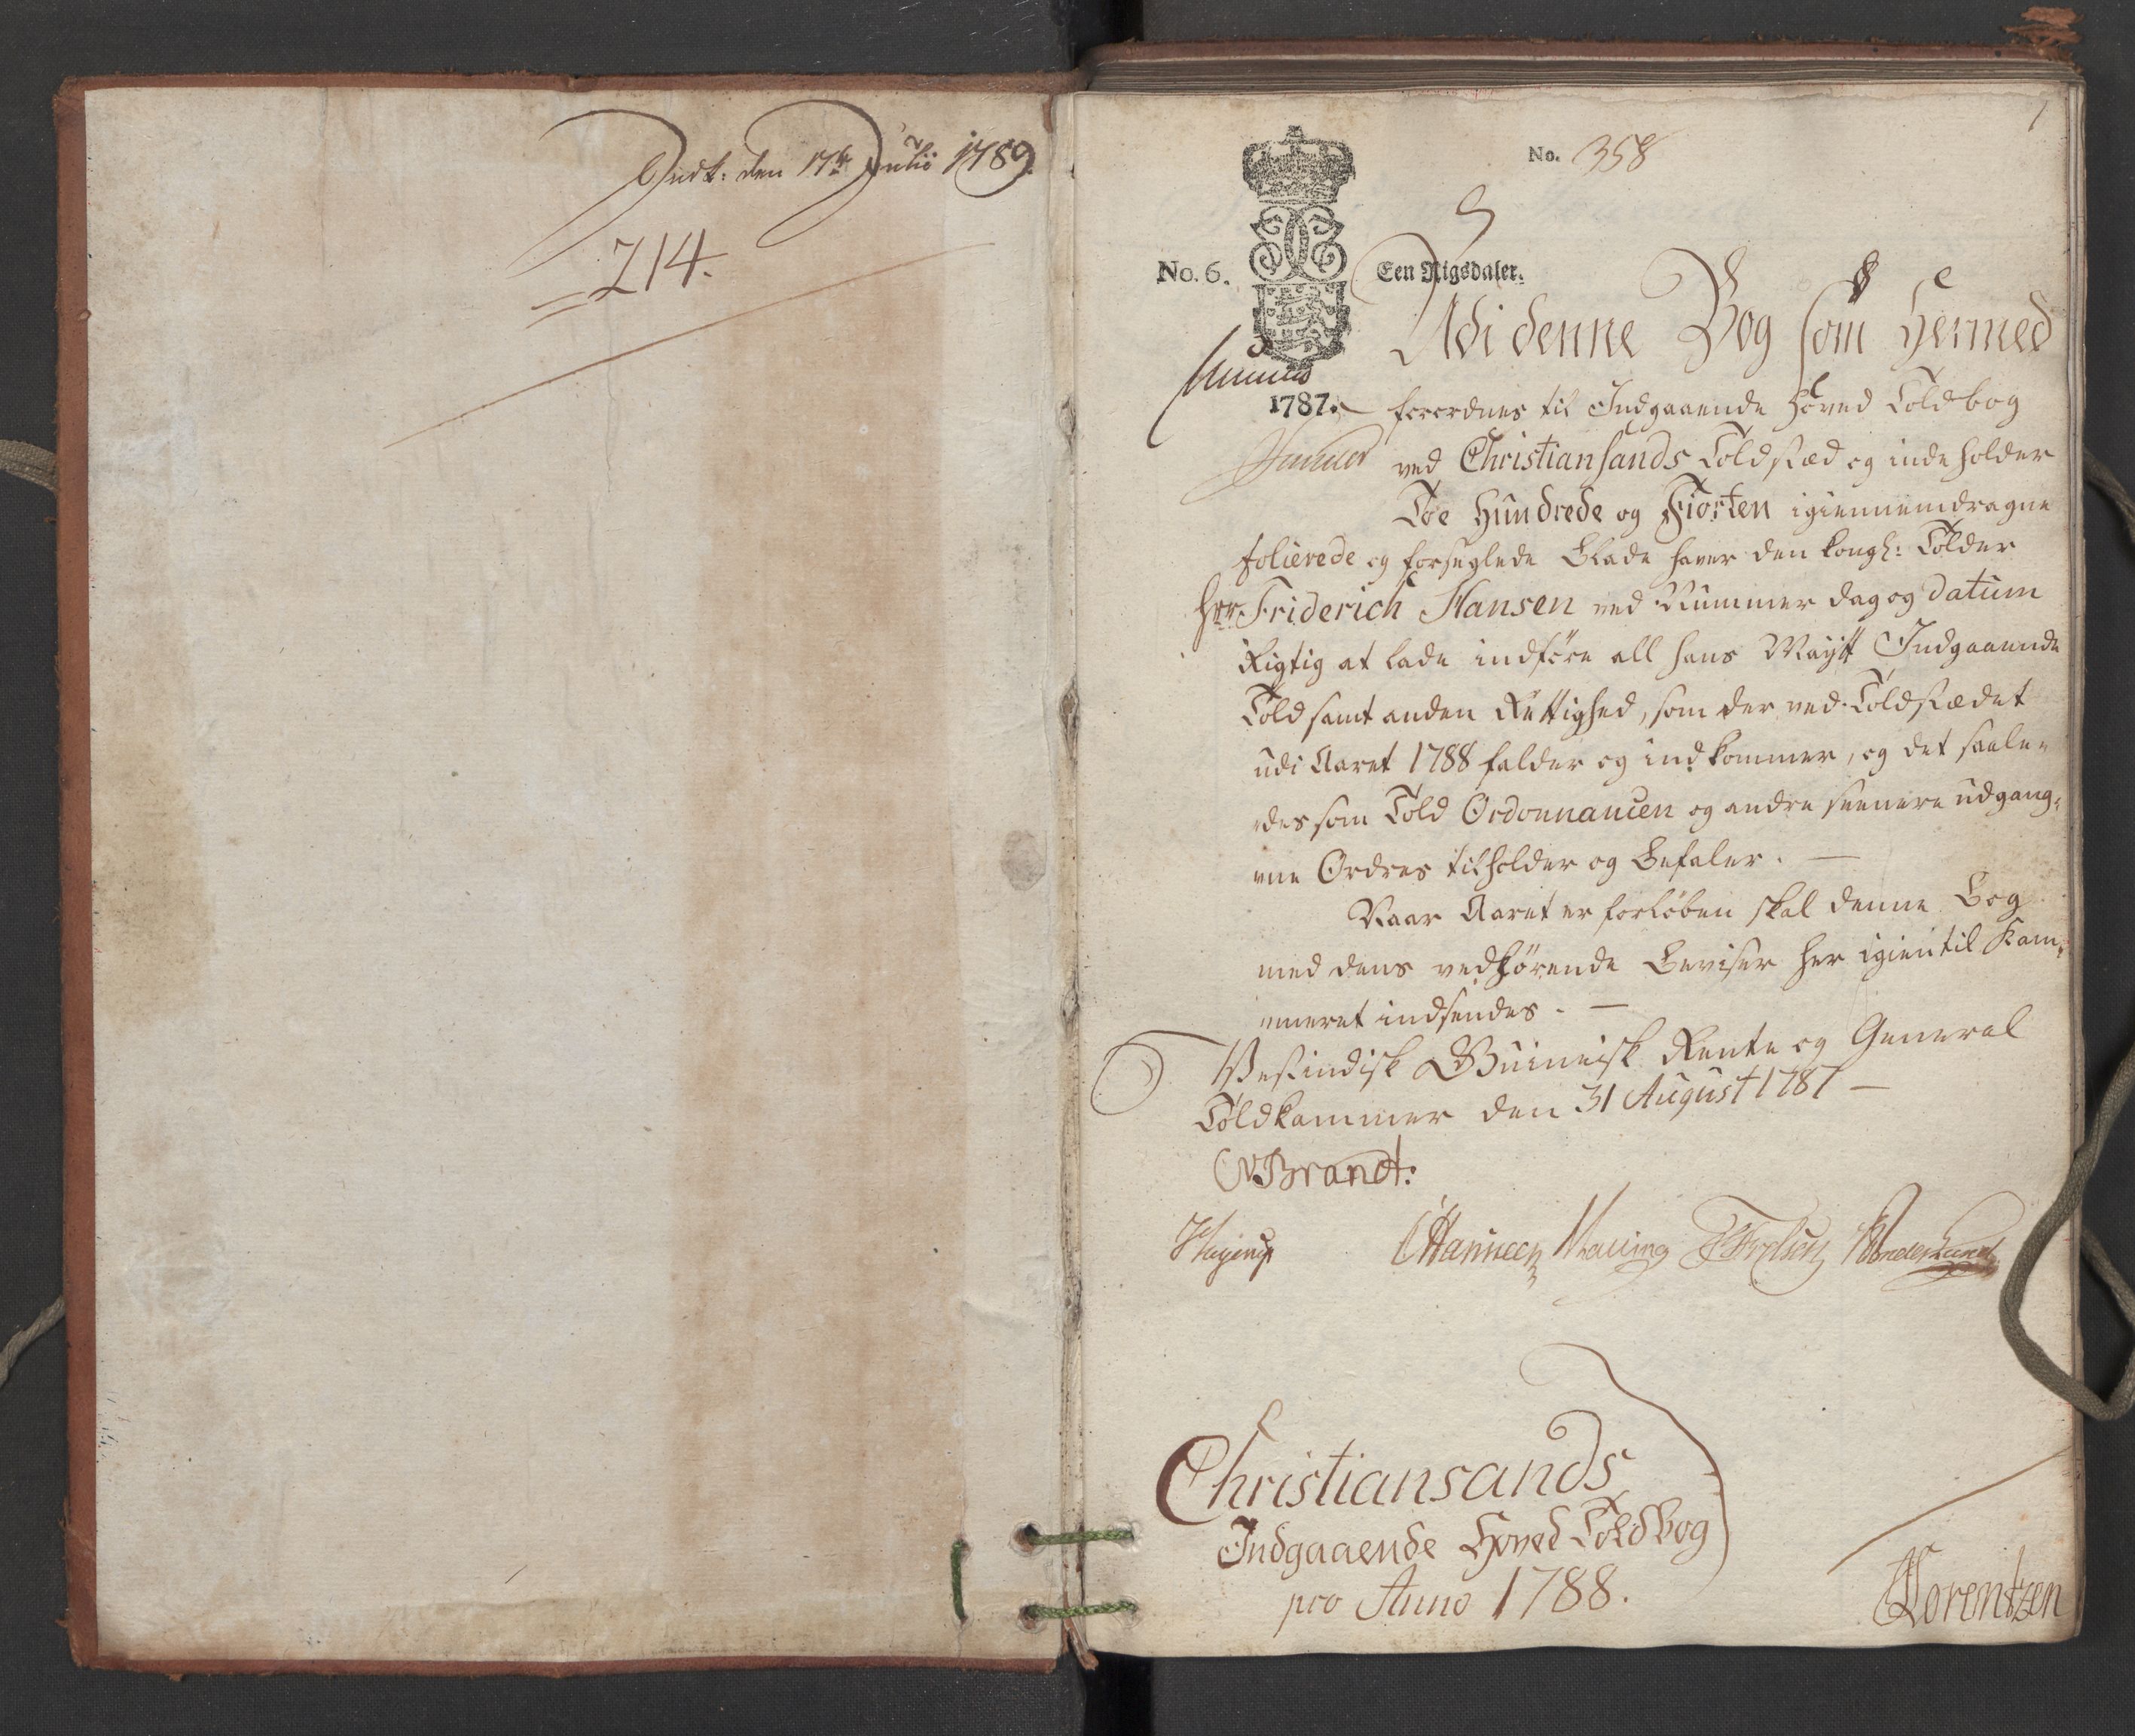 Indk: den 17de Julii 1789.
214.
1
No. 358
No. 6.
Een Rigsdaler.
1787.
Udi denne Bog som hermed
forordnes til Indgaaende Hoved Toldbog
ved Christiansands Toldstæd og indeholder
Toe Hundrede og Fiorten igiennemdragne
folierede og forseglede Blade haver den kongl: Tolder
Hr. Friderich Hansen ved Nummer dag og datum
Rigtig at lade indføre all hans Maytt Indgaaende
Told samt anden Rettighed, som der ved Toldstædet
udi Aaret 1788 falder og indkommer, og det saale-
des som Told Ordonnancen og andre seenere udgang-
ne Ordres tilholder og Befaler. —
Naar Aaret er forløben skal denne Bog
med dens vedhørende Beviser her igien til Kam-
meret indsendes. —
Vestindisk Guineisk Rente og General
Toldkammer den 31 August 1787 —
Brandt:
Christiansands
Indgaaende Hoved Toldbog
pro Anno 1788.
Lorentzen